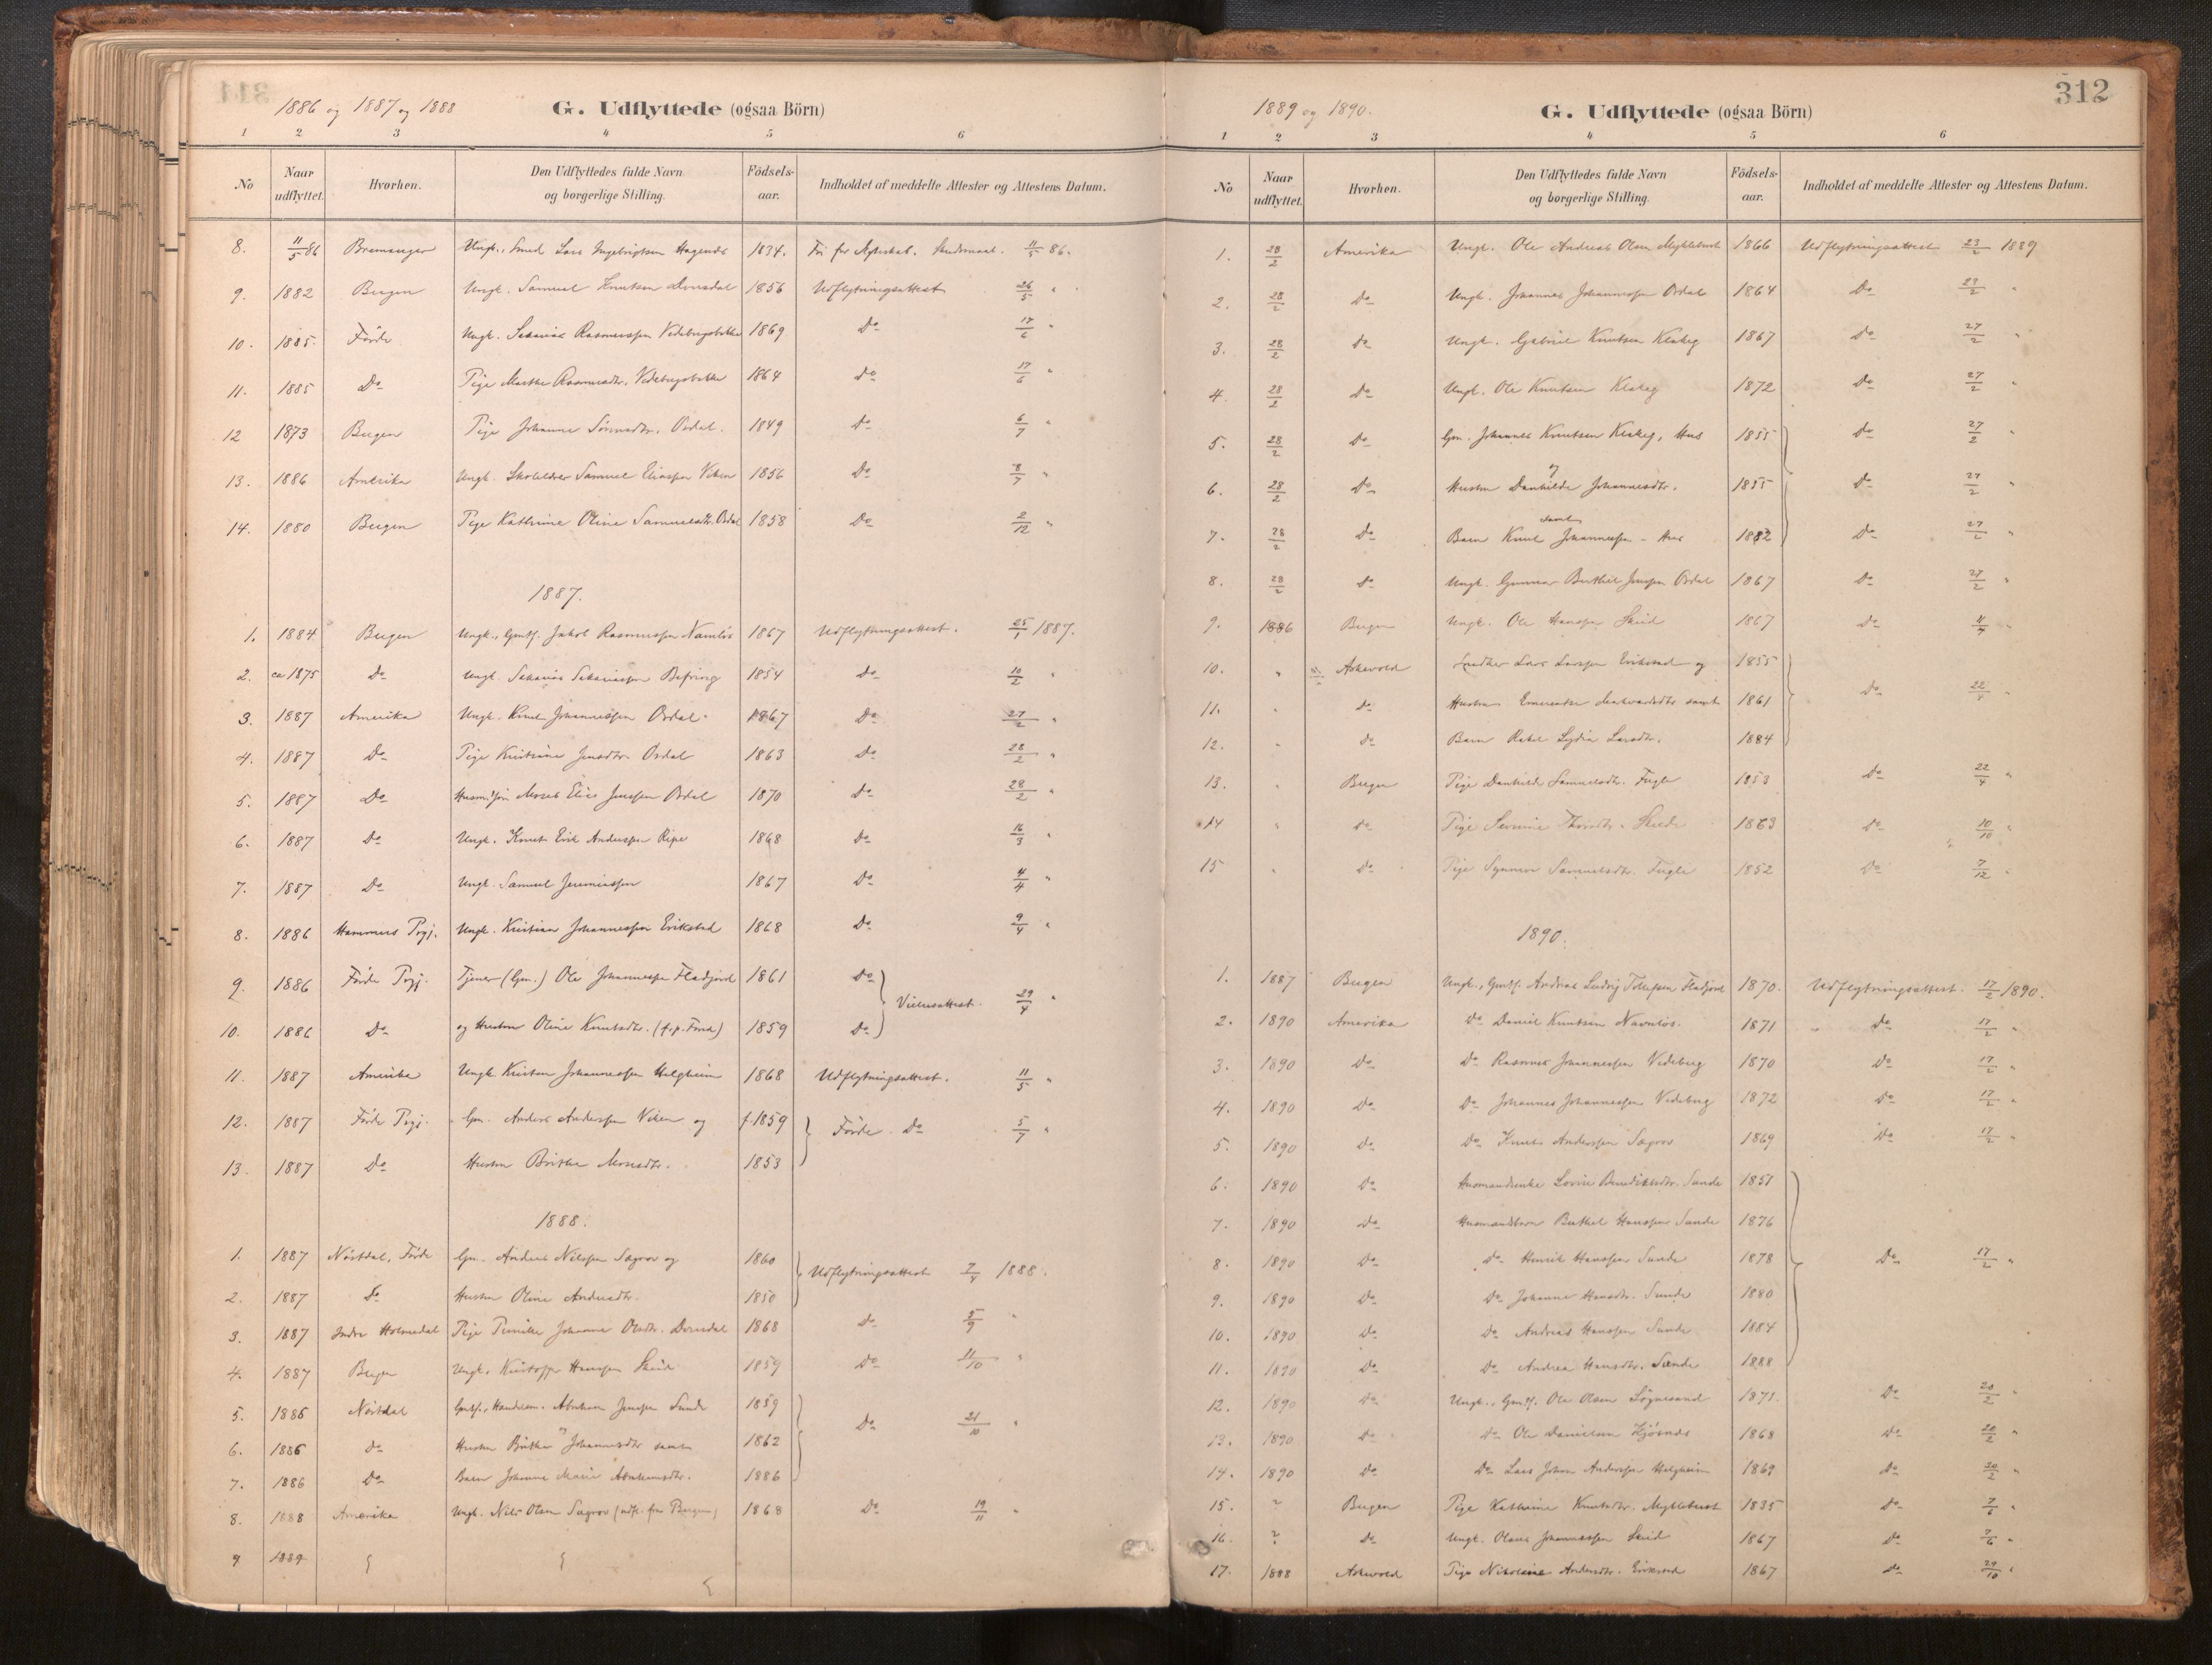 1886 og 1887 og 1888 G. Udflyttede (ogsaa Börn)
1 2 3 4 5 6
No Naar udflyttet. Hvorhen. Den Udflyttedes fulde Navn og borgerlige Stilling. Födsels-aar. Indholdet af meddelte Attester og Attestens Datum.
8. 11/5 86 Bremanger Ungk., Smed Lars Ingebrigtsen 1834. Fri for Ægteskab. 11/5 86.
9. 1882 Bergen Ungk. Samuel Knutsen 1856 Udflytningsattest 26/5 "
10. 1885. Förde Ungk. Sakarias Rasmussen 1869 Do 17/6 "
11. 1885 Do Pige Marthe Rasmusdtr. 1864 Do 17/6 "
12 1873 Bergen Pige Johanne Ordal. 1849 Do 6/7 "
13. 1886 Amerika Ungk. Samuel Eliassen Viken 1856 Do 8/7 "
14. 1880 Bergen Pige Kathrine Oline Samuelsdtr. Ordal 1858 Do 2/12 "
1887.
1. 1884 Bergen Ungk., Gmds. Jakob Rasmussen Navnløs 1867 Udflytningsattest. 25/1 1887.
2. ca 1875 Do Ungk. Sakarias Sakariassen Befring 1854 Do 10/2 "
3. 1887 Amerika Ungk. Knut Johannessen Ordal. 1867 Do 27/2 "
4. 1887 Do Pige Kristiane Jensdtr. Ordal 1863 Do 28/2 "
5. 1887 Do Elias Jenssen Ordal 1870 Do 28/2 "
6. 1887 Do Ungk. Knut Erik Anderssen Ripe 1868 Do 16/3 "
7. 1887 Do Ungk. Samuel Jeremiassen 1867 Do 4/4 "
8. 1886 Hammers Prgj. Ungk. Kristian Johannessen Erikstad 1868 Do 9/4 "
9. 1886 Förde Prgj. Tjener (Gm.) Ole Johannessen Fladjord 1861 Do Vielsesattest. 29/4 "
10. 1886 Do og Hustru Oline Knutsdtr. 1859 Do
11. 1887 Amerika Ungk. Kristen Johannessen Helgheim 1868 Udflytningsattest. 11/5 "
12. 1887 Förde Prgj. Gm. Anders Anderssen Viken og f. 1859 Förde Do 5/7 "
13. 1887 Do Hustru Brithe Monsdtr. 1853
1888.
1. 1887 Nöstdal, Förde Gm. Anders Nilssen Sægrov og 1860 Udflytningsattest 7/4 1888.
2. 1887 Do Hustru Oline Andersdtr. 1850
3. 1887 Indre Holmedal Pige Pernille Johanne Olsdtr. 1868 Do 5/9 "
4. 1887 Bergen Ungk. Kristoffer Hanssen Skeid 1859 Do 11/10 "
5. 1886 Nöstdal Abraham Jenssen Sunde 1859 Do 21/10 "
6. 1886 do Hustru Brithe Johannesdtr samt 1862
7. 1886 Do Barn Johanne Marie Abrahamsdtr. 1886
8. 1888 Amerika Ungk. Nils Olsen Sægrov (udfl. fra Bergen) 1868 Do 19/11 "
9 1889
1889 og 1890. G. Udflyttede (ogsaa Börn) 312
1 2 3 4 5 6
No Naar udflyttet. Hvorhen. Den Udflyttedes fulde Navn og borgerlige Stilling. Födsels-aar. Indholdet af meddelte Attester og Attestens Datum.
1. 28/2 Amerika Ungk. Ole Andreas Olsen Myklebust 1866 Udflytningsattest 23/2 1889
2. 28/2 Do Ungk. Johannes Johannessen Ordal 1864 Do 27/2 "
3. 28/2 Do Ungk. Gabriel Knutsen Klakeg 1867 Do 27/2 "
4. 28/2 Do Ungk. Ole Knutsen Klakeg 1872 Do 27/2 "
5. 28/2 Do Gm. Johannes Knutsen Klakeg, Hus 1855 Do 27/2 "
6. 28/2 Do og Hustru Danhilde Johannesdtr. 1855 Do 27/2 "
7. 28/2 Do samt Barn Knut Johannessen - Hus 1882 Do 27/2 "
8. 28/2 Do Ungk. Gunnar Berthel Jenssen Ordal 1867 Do 27/2 "
9. 1886 Bergen Ungk. Ole Hanssen Skeid 1867 Do "
10. " Askevold Lars Larssen Erikstad og 1855
11. " do Hustru samt 1861 Do "
12. " do Barn Rakel Lydia Larsdtr. 1884
13. " Bergen Pige Danhilde Samuelsdtr. Fugle 1853 Do 22/4 "
14 " do Pige Skeide 1863 do 10/10 "
15 " do Pige Synneve Samuelsdtr. Fugle 1852 Do 7/12 "
1890.
1. 1887 Bergen Ungk., Gmds. Andreas Ludvig Tollefsen Fladjord 1870. Udflytningsattest. 17/2 1890.
2. 1890 Amerika Do Daniel Knutsen Navnløs. 1871 Do 17/2 "
3. 1890 Do Do Rasmus Johannessen Vedeberg 1870 Do 17/2 "
4. 1890 Do Do Johannes Johannessen Vedeberg 1872 Do 17/2 "
5. 1890 Do Do Knut Anderssen Sægrov 1869 Do 17/2 "
6. 1890 Do Husmandsenke Lovise Benediktsdtr. Sunde 1851
7. 1890 do Husmandsbarn Berthel Hanssen Sunde 1876
8. 1890 Do Do Henrik Hanssen Sunde 1878 Do 17/2 "
9. 1890 Do Do Johanne Hansdtr. Sunde 1880
10. 1890 Do Do Andreas Hanssen Sunde 1884
11. 1890 Do Do Andrea Hansdtr. Sunde 1888
12. 1890 Do Ungk., Gmds. Ole Olsen Søgnesand 1871. Do 20/2 "
13. 1890 Do Do Ole Danielsen Kjösnes 1868 Do 20/2 "
14. 1890 Do Do Lars Johan Anderssen Helgheim 1869 do 20/2 "
15. ? Bergen Pige Kathrine Knutsdtr. Myklebust 1835 do 7/6 "
16. ? do Ungk. Olaus Johannessen Skeid 1867 do 7/6 "
17. 1888 Askevold Pige Nikoline Andersdtr. Erikstad 1867 do 29/10 "